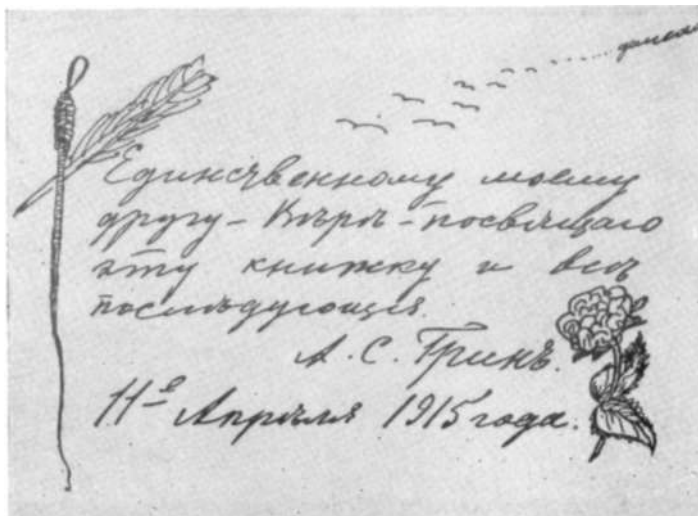 Единственному моему
другу – Вѣрѣ – посвящаю
эту книжку и всѣ
послѣдующія.
А. С. Гринъ.
11е Апрѣля 1915 года.